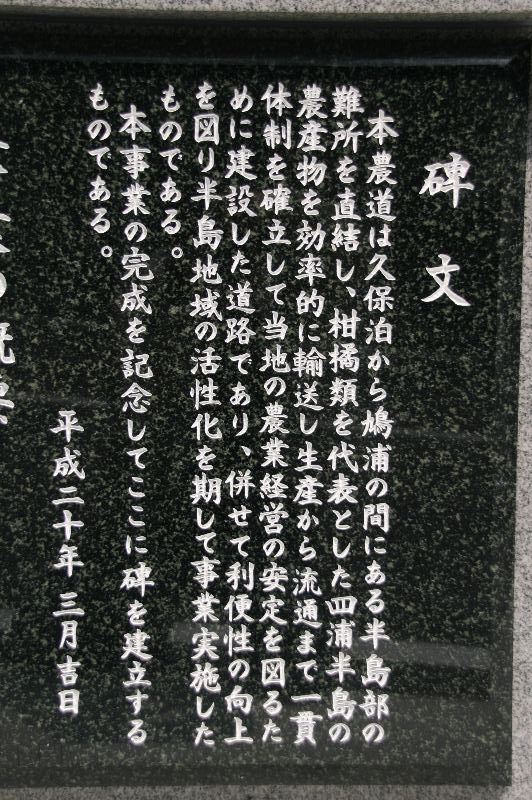 碑文
本農道は久保泊から鳩浦の間にある半島部の
難所を直結し、柑橘類を代表とした四浦半島の
農産物を効率的に輸送し生産から流通まで一貫
体制を確立して当地の農業経営の安定を図るた
めに建設した道路であり、併せて利便性の向上
を図り半島地域の活性化を期して事業実施した
ものである。
本事業の完成を記念してここに碑を建立する
ものである。
平成二十年三月吉日